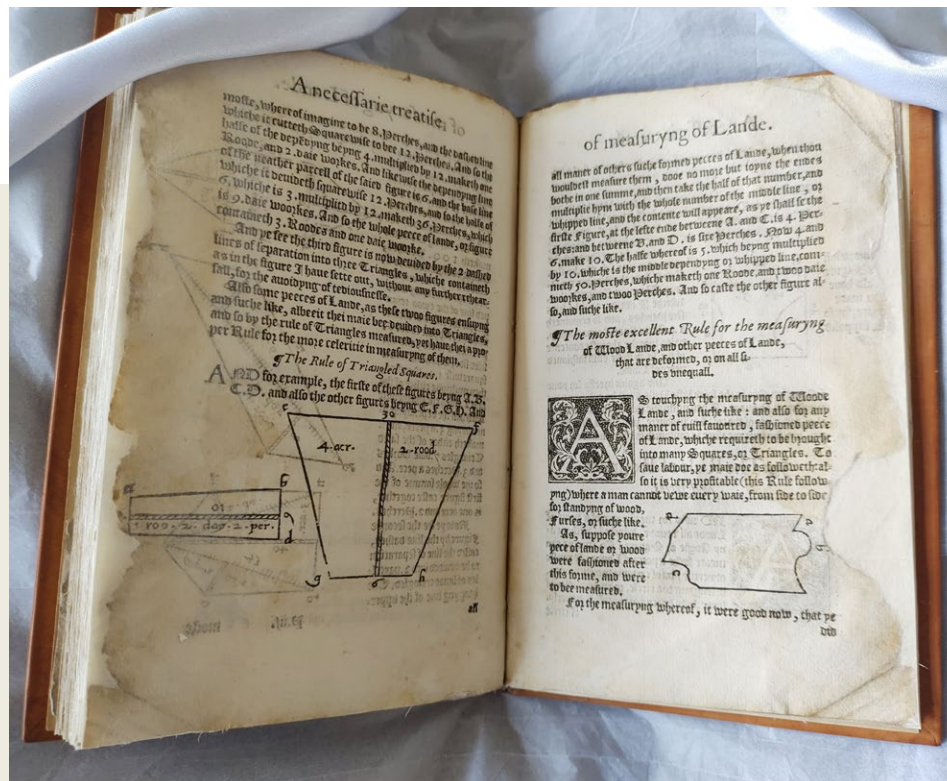 A necessarie treatise,
moste, whereof imagine to be 8. Perches, and the dashed line
whiche it cutteth Square wise to bee 12. Perches. And so the
halfe of the dependyng beyng 4. multiplied by 12. maketh one
Roode, and 2. daie workes. And likewise the dependyng line
of the neather parcell of the saied figure is 6, and the base line
whiche it deuideth squarewise 12. Perches, and so the halfe of
6, whiche is 3. multiplied by 12. maketh 36, Perches, which
is 9. daie woorkes. And so the whole pece of lande, or figure
containeth 3. Roodes and one daie woorke.
And ye see the third figure is now deuided by the 2 dashed
lines of separation into three Triangles, whiche containeth
as in the figure I haue sette out, without any further rehear-
sall, for the auoidyng of tediousnesse.
Also some peeces of Lande, as these twoo figures ensuyng
and suche like, albeeit thei maie bee deuided into Triangles,
and so by the rule of Triangles measured, yet haue thei a pro-
per Rule for the more celeritie in measuryng of them.
¶The Rule of Triangled Squares.
AND for example, the firste of these figures beyng A.B.
C.D. and also the other figures beyng E.F.G.H. And
e
30
f
4. acr.
2. rood
a
b
10
1 roo. 2. day. 2. per.
c
d
g
6
h
all
of measuryng of Lande.
all maner of others suche formed peeces of Lande, when thou
wouldest measure them, dooe no more but ioyne the endes
bothe in one summe, and then take the half of that number, and
multiplie hym with the whole number of the middle line, or
whipped line, and the contente will appeare, as ye shall se the
firste Figure, at the lefte ende betweene A. and C. is 4. Per-
ches: and betweene B. and D. is sixe Perches. Now 4. and
6. make 10. The halfe whereof is 5. which beyng multiplied
by 10. whiche is the middle dependyng or whipped line, com-
meth 50. Perches, whiche maketh one Roode, and twoo daie
woorkes, and twoo Perches. And so caste the other figure al-
so, and suche like.
¶The moste excellent Rule for the measuryng
of Wood Lande, and other peeces of Lande,
that are deformed, or on all si-
des vnequall.
AS touchyng the measuryng of Woode
Lande, and suche like: and also for any
maner of euill fauoured, fashioned peece
of Lande, whiche requireth to be brought
into many Squares, or Triangles. To
saue labour, ye maie doe as followeth: al-
so it is very profitable (this Rule follow
yng) where a man cannot vewe euery waie, from side to side
for standyng of wood,
Furses, or suche like.
As, suppose youre
pece of lande or wood
were fashioned after
this forme, and were
to bee measured.
For the measuryng whereof, it were good now, that ye
did